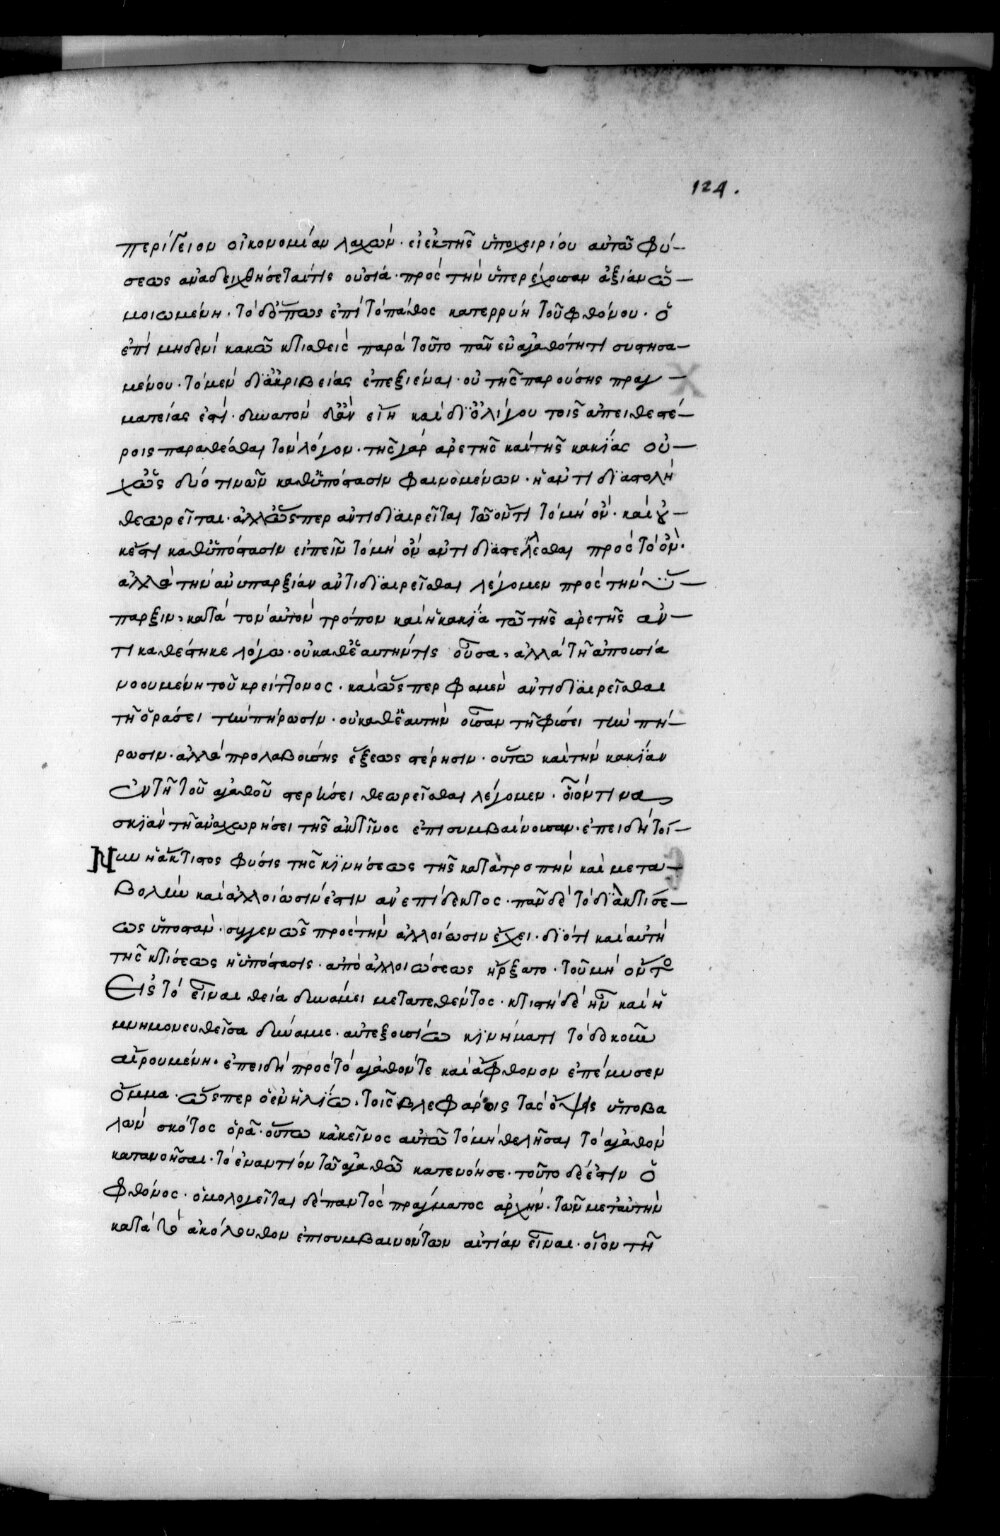 124.
περίγειον οἰκονομίαν λαχών· εἰ ἐκ τῆς ὑποχειρίου αὐτῶ φύ-
σεως ἀναδειχθήσεταί τις οὐσία πρὸς τὴν ὑπερέχουσαν ἀξίαν ὡ-
μοιωμένη· τὸ δ' ὅπως ἐπὶ τὸ πάθος κατερρύη τοῦ φθόνου· ὁ
ἐπὶ μηδενὶ κακῶ κτισθεὶς παρὰ τοῦ τὸ πᾶν ἐν ἀγαθότητι συστησα-
μένου· τὸ μὲν δι' ἀκριβείας ἐπεξιέναι· οὐ τῆς παρούσης πραγ-
ματείας ἐστί· δυνατὸν δ' ἂν εἴη καὶ δι' ὀλίγου τοῖς ἀπειθεστέ-
ροις παραθέσθαι τὸν λόγον· τῆς γὰρ ἀρετῆς καὶ τῆς κακίας οὐ-
χ' ὡς δύο τινῶν καθ' ὑπόστασιν φαινομένων· ἡ ἀντιδιαστολὴ
θεωρεῖται· ἀλλ' ὥσπερ ἀντιδιαιρεῖται τῶ ὄντι τὸ μὴ ὄν· καὶ οὐ-
κ ἔστι καθ' ὑπόστασιν εἰπεῖν τὸ μὴ ὂν ἀντιδιαστέλλεσθαι πρὸς τὸ ὄν·
ἀλλὰ τὴν ἀνυπαρξίαν ἀντιδιαιρεῖσθαι λέγομεν πρὸς τὴν ὕ-
παρξιν, κατὰ τὸν αὐτὸν τρόπον καὶ ἡ κακία τῶ τῆς ἀρετῆς ἀν-
τικαθέστηκε λόγω· οὐ καθ' ἑαυτήν τις οὖσα, ἀλλὰ τῆ ἀπουσία
νοουμένη τοῦ κρείττονος· καὶ ὥσπερ φαμὲν ἀντιδιαιρεῖσθαι
τῆ ὁράσει τὴν πήρωσιν· οὐ καθ' ἑαυτὴν οὖσαν τῆ φύσει τὴν πή-
ρωσιν· ἀλλὰ προλαβούσης ἕξεως στέρησιν· οὕτω καὶ τὴν κακίαν
ἐν τῆ τοῦ ἀγαθοῦ στερήσει θεωρεῖσθαι λέγομεν· οἷόν τινα
σκιὰν τῆ ἀναχωρήσει τῆς ἀκτῖνος ἐπισυμβαίνουσαν· ἐπειδὴ τοί-
Νυν ἡ ἄκτιστος φύσις τῆς κινήσεως τῆς κατὰ τροπὴν καὶ μετα-
βολὴν καὶ ἀλλοίωσίν ἐστιν ἀνεπίδεκτος· πᾶν δὲ τὸ διὰ κτίσε-
ως ὑποστάν· συγγενῶς πρὸς τὴν ἀλλοίωσιν ἔχει· διότι καὶ αὐτὴ
τῆς κτίσεως ἡ ὑπόστασις· ἀπὸ ἀλλοιώσεως ἤρξατο· τοῦ μὴ ὄντος
Εἰς τὸ εἶναι θεία δυνάμει μετατεθέντος· κτιστὴ δὲ ἦν καὶ ἡ
μνημονευθεῖσα δύναμις· αὐτεξουσίω κινήματι τὸ δοκοῦν
αἱρουμένη· ἐπειδὴ πρὸς τὸ ἀγαθόν τε καὶ ἄφθονον ἐπέμυσεν
ὄμμα· ὥσπερ ὁ ἐν ἡλίω· τοῖς βλεφάροις τὰς ὄψεις ὑποβα
λὼν σκότος ὁρᾶ· οὕτω κἀκεῖνος αὐτῶ τὸ μὴ θελῆσαι τὸ ἀγαθὸν
κατανοῆσαι· τὸ ἐναντίον τῶ ἀγαθῶ κατενόησε· τοῦτο δέ ἐστιν ὁ
φθόνος· ὁμολογεῖται δὲ παντὸς πράγματος ἀρχήν· τῶν μετ' αὐτὴν
κατὰ τὸ ἀκόλουθον ἐπισυμβαινόντων αἰτίαν εἶναι· οἷον τῆ